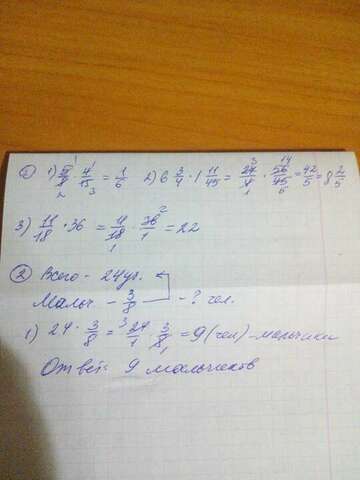 ① 1) 5/8 · 4/15 = 1/6 2) 6 3/4 · 1 11/45 = 27/4 · 56/45 = 42/5 = 8 2/5
3) 11/18 · 36 = 11/18 · 36/1 = 22
② Всего - 24уч.
Мальч - 3/8 - ? чел.
1) 24 · 3/8 = 24/1 · 3/8 = 9 (чел) - мальчики
Ответ: 9 мальчиков